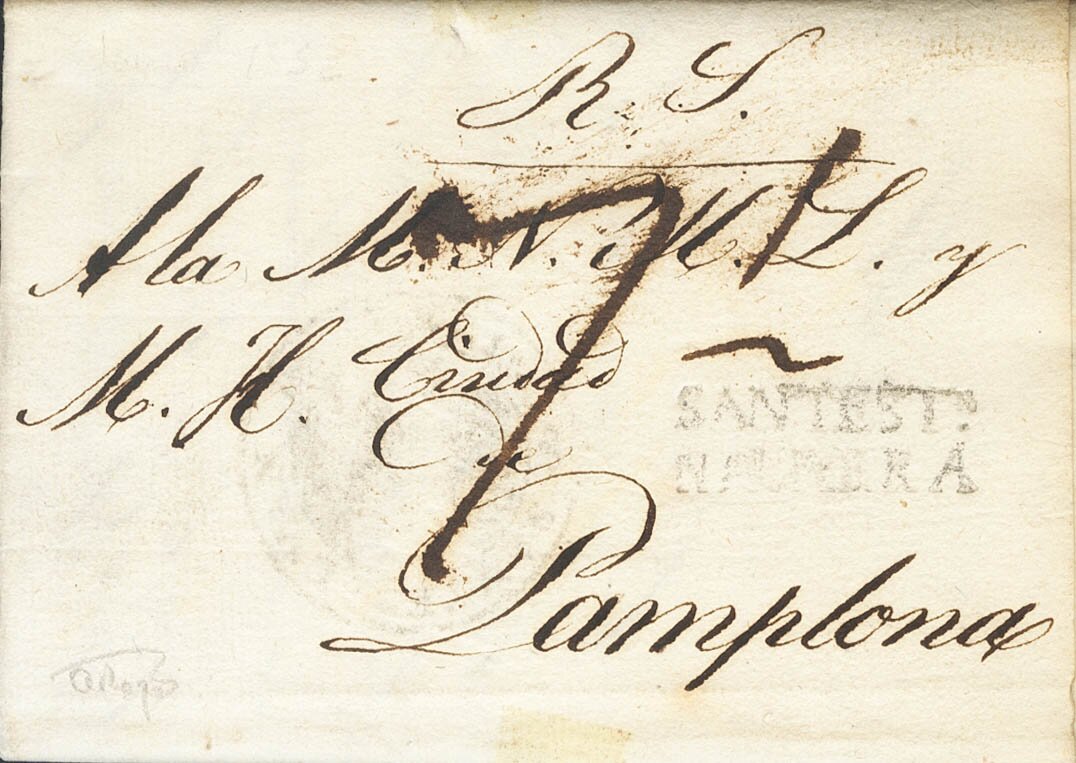 R. S.
A la M. N. M. L. y
M. H. Ciudad
de
Pamplona
7
SANTEST:
NAVARRA